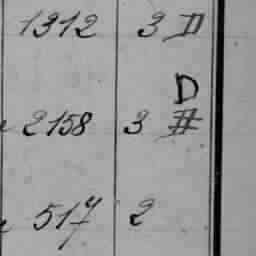 1312 3 D
D
2158 3 #
517 2